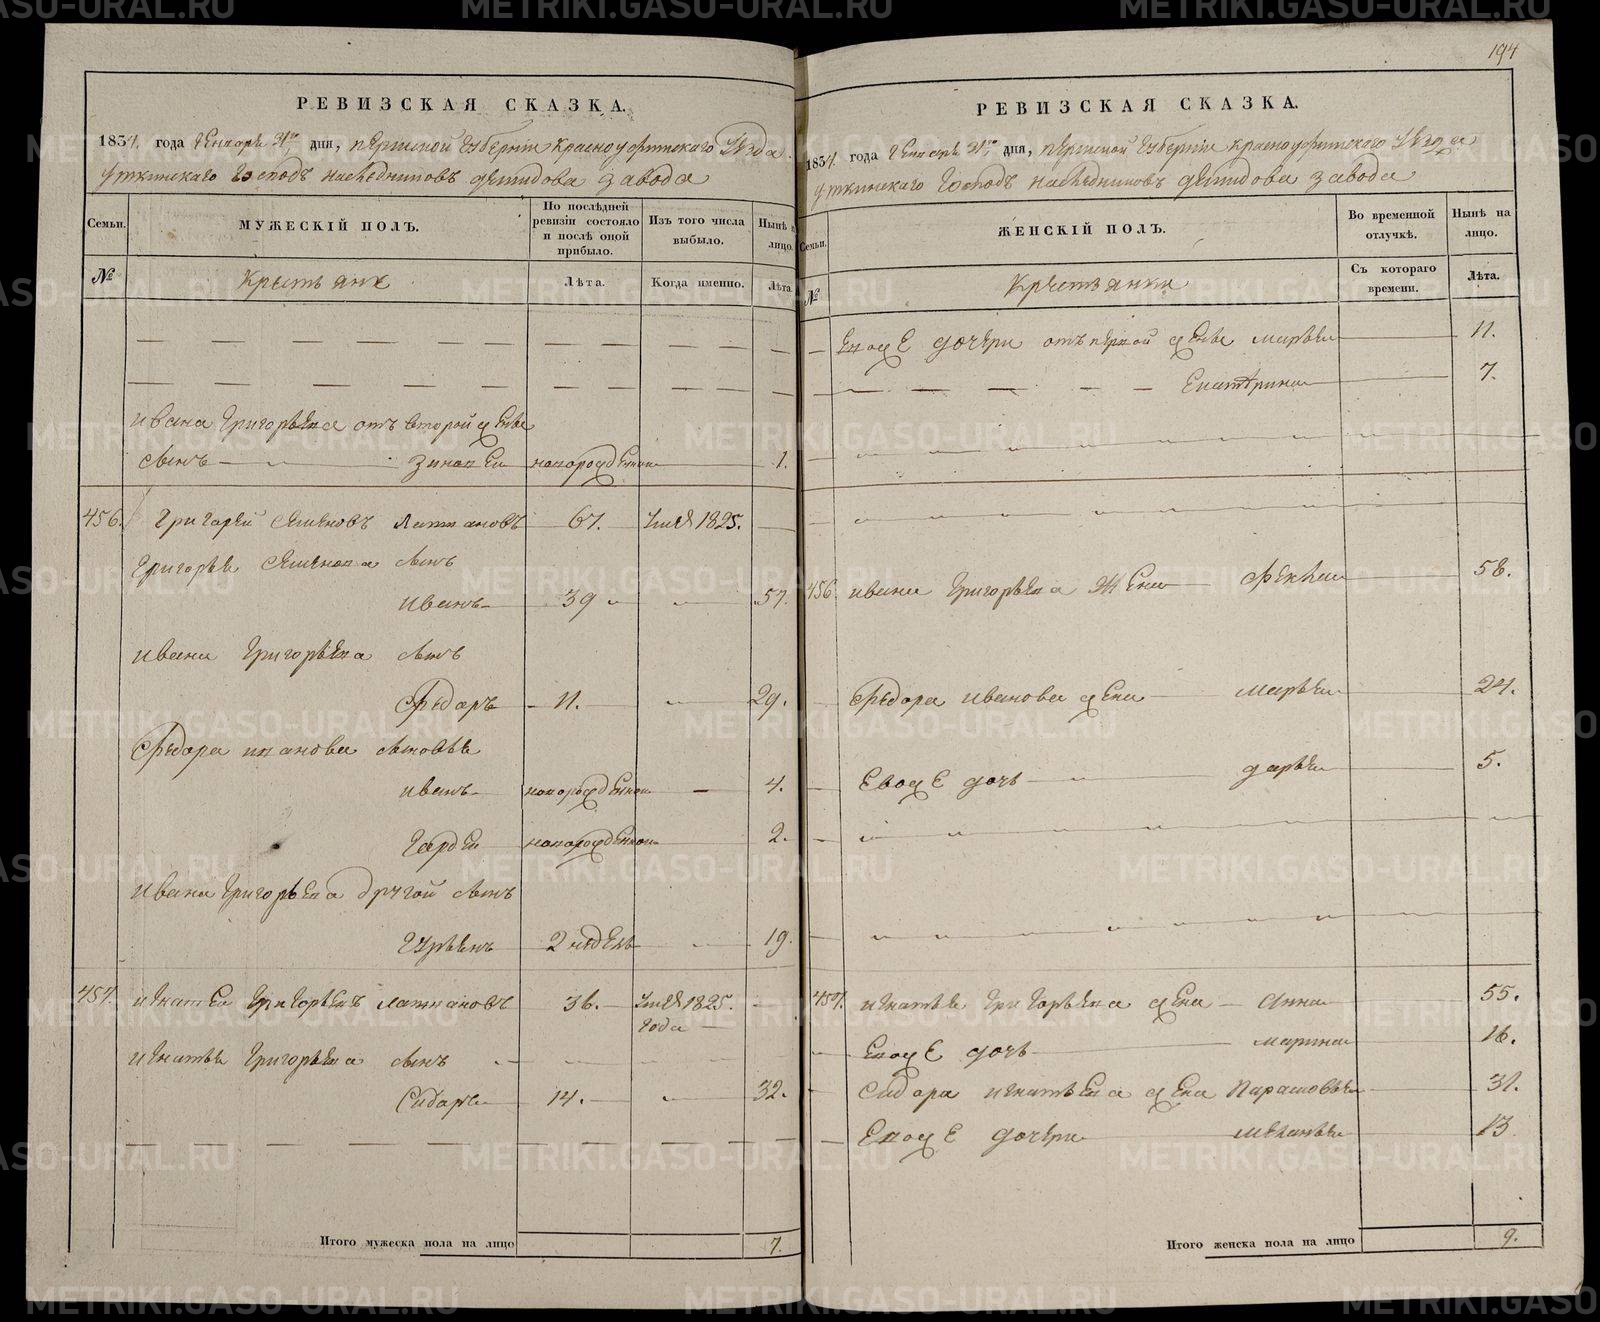 194
РЕВИЗСКАЯ СКАЗКА.
1834 года Генваря 31го дня, пермской губернiи красноуфимскаго Уезда
уткинскаго Господъ наследниковъ демидова завода
Семьи.
МУЖЕСКІЙ ПОЛЪ.
По послѣдней ревизіи состояло и послѣ оной прибыло.
Изъ того числа выбыло.
Нынѣ н лицо.
№
Крестьяне
Лѣта.
Когда именно.
Лѣта.
ивана григорьева отъ второй жены
сынъ зиновей новорожденной 1.
456. григорей семеновъ латмановъ 67. умре 1825.
григорья семенова сынъ
иванъ 39 57.
ивана григорьева сынъ
федоръ 11. 29.
федора иванова сыновья
иванъ новорожденной 4.
гордей новорожденной 2.
ивана григорьева другой сынъ
гурьянъ 2 недель 19.
457. игнатей григорьевъ латмановъ 36. умре 1825.
года
игнатья григорьева сынъ
сидоръ 14. 32.
Итого мужеска пола на лицо 7.
РЕВИЗСКАЯ СКАЗКА.
1834 года Генваря 31го дня, пермской губернiи красноуфимскаго Уезда
уткинскаго Господъ наследниковъ демидова завода
Семьи.
ЖЕНСКІЙ ПОЛЪ.
Во временной отлучкѣ.
Нынѣ на лицо.
№
Крестьянки
Съ котораго времени.
Лѣта.
евоже дочери отъ первой жены марья 11.
екатерина 7.
456 ивана григорьева жена фекла 58.
федора иванова жена марья 24.
евоже дочь дарья 5.
457. игнатья григорьева жена анна 55.
евоже дочь марина 16.
сидора игнатьева жена парасковья 31.
евоже дочери меланья 13
Итого женска пола на лицо 9.
METRIKI.GASO-URAL.RU